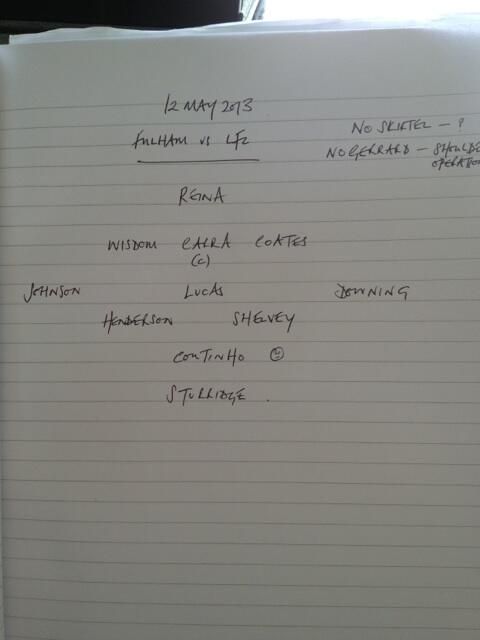 12 MAY 2013
FULHAM VS LFC
NO SKRTEL - ?
NO GERRARD - SHOULDE
OPERATION
REINA
WISDOM CARRA COATES
(C)
JOHNSON LUCAS DOWNING
HENDERSON SHELVEY
COUTINHO ☺
STURRIDGE .